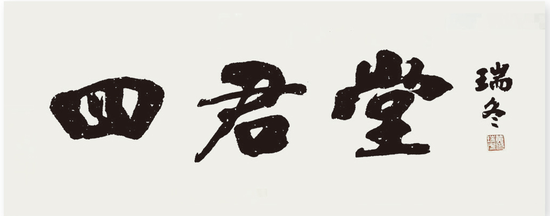 四君堂
瑞冬